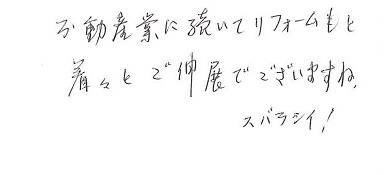 不動産業に続いてリフォームもと
着々とご伸展でございますね、
スバラシイ!